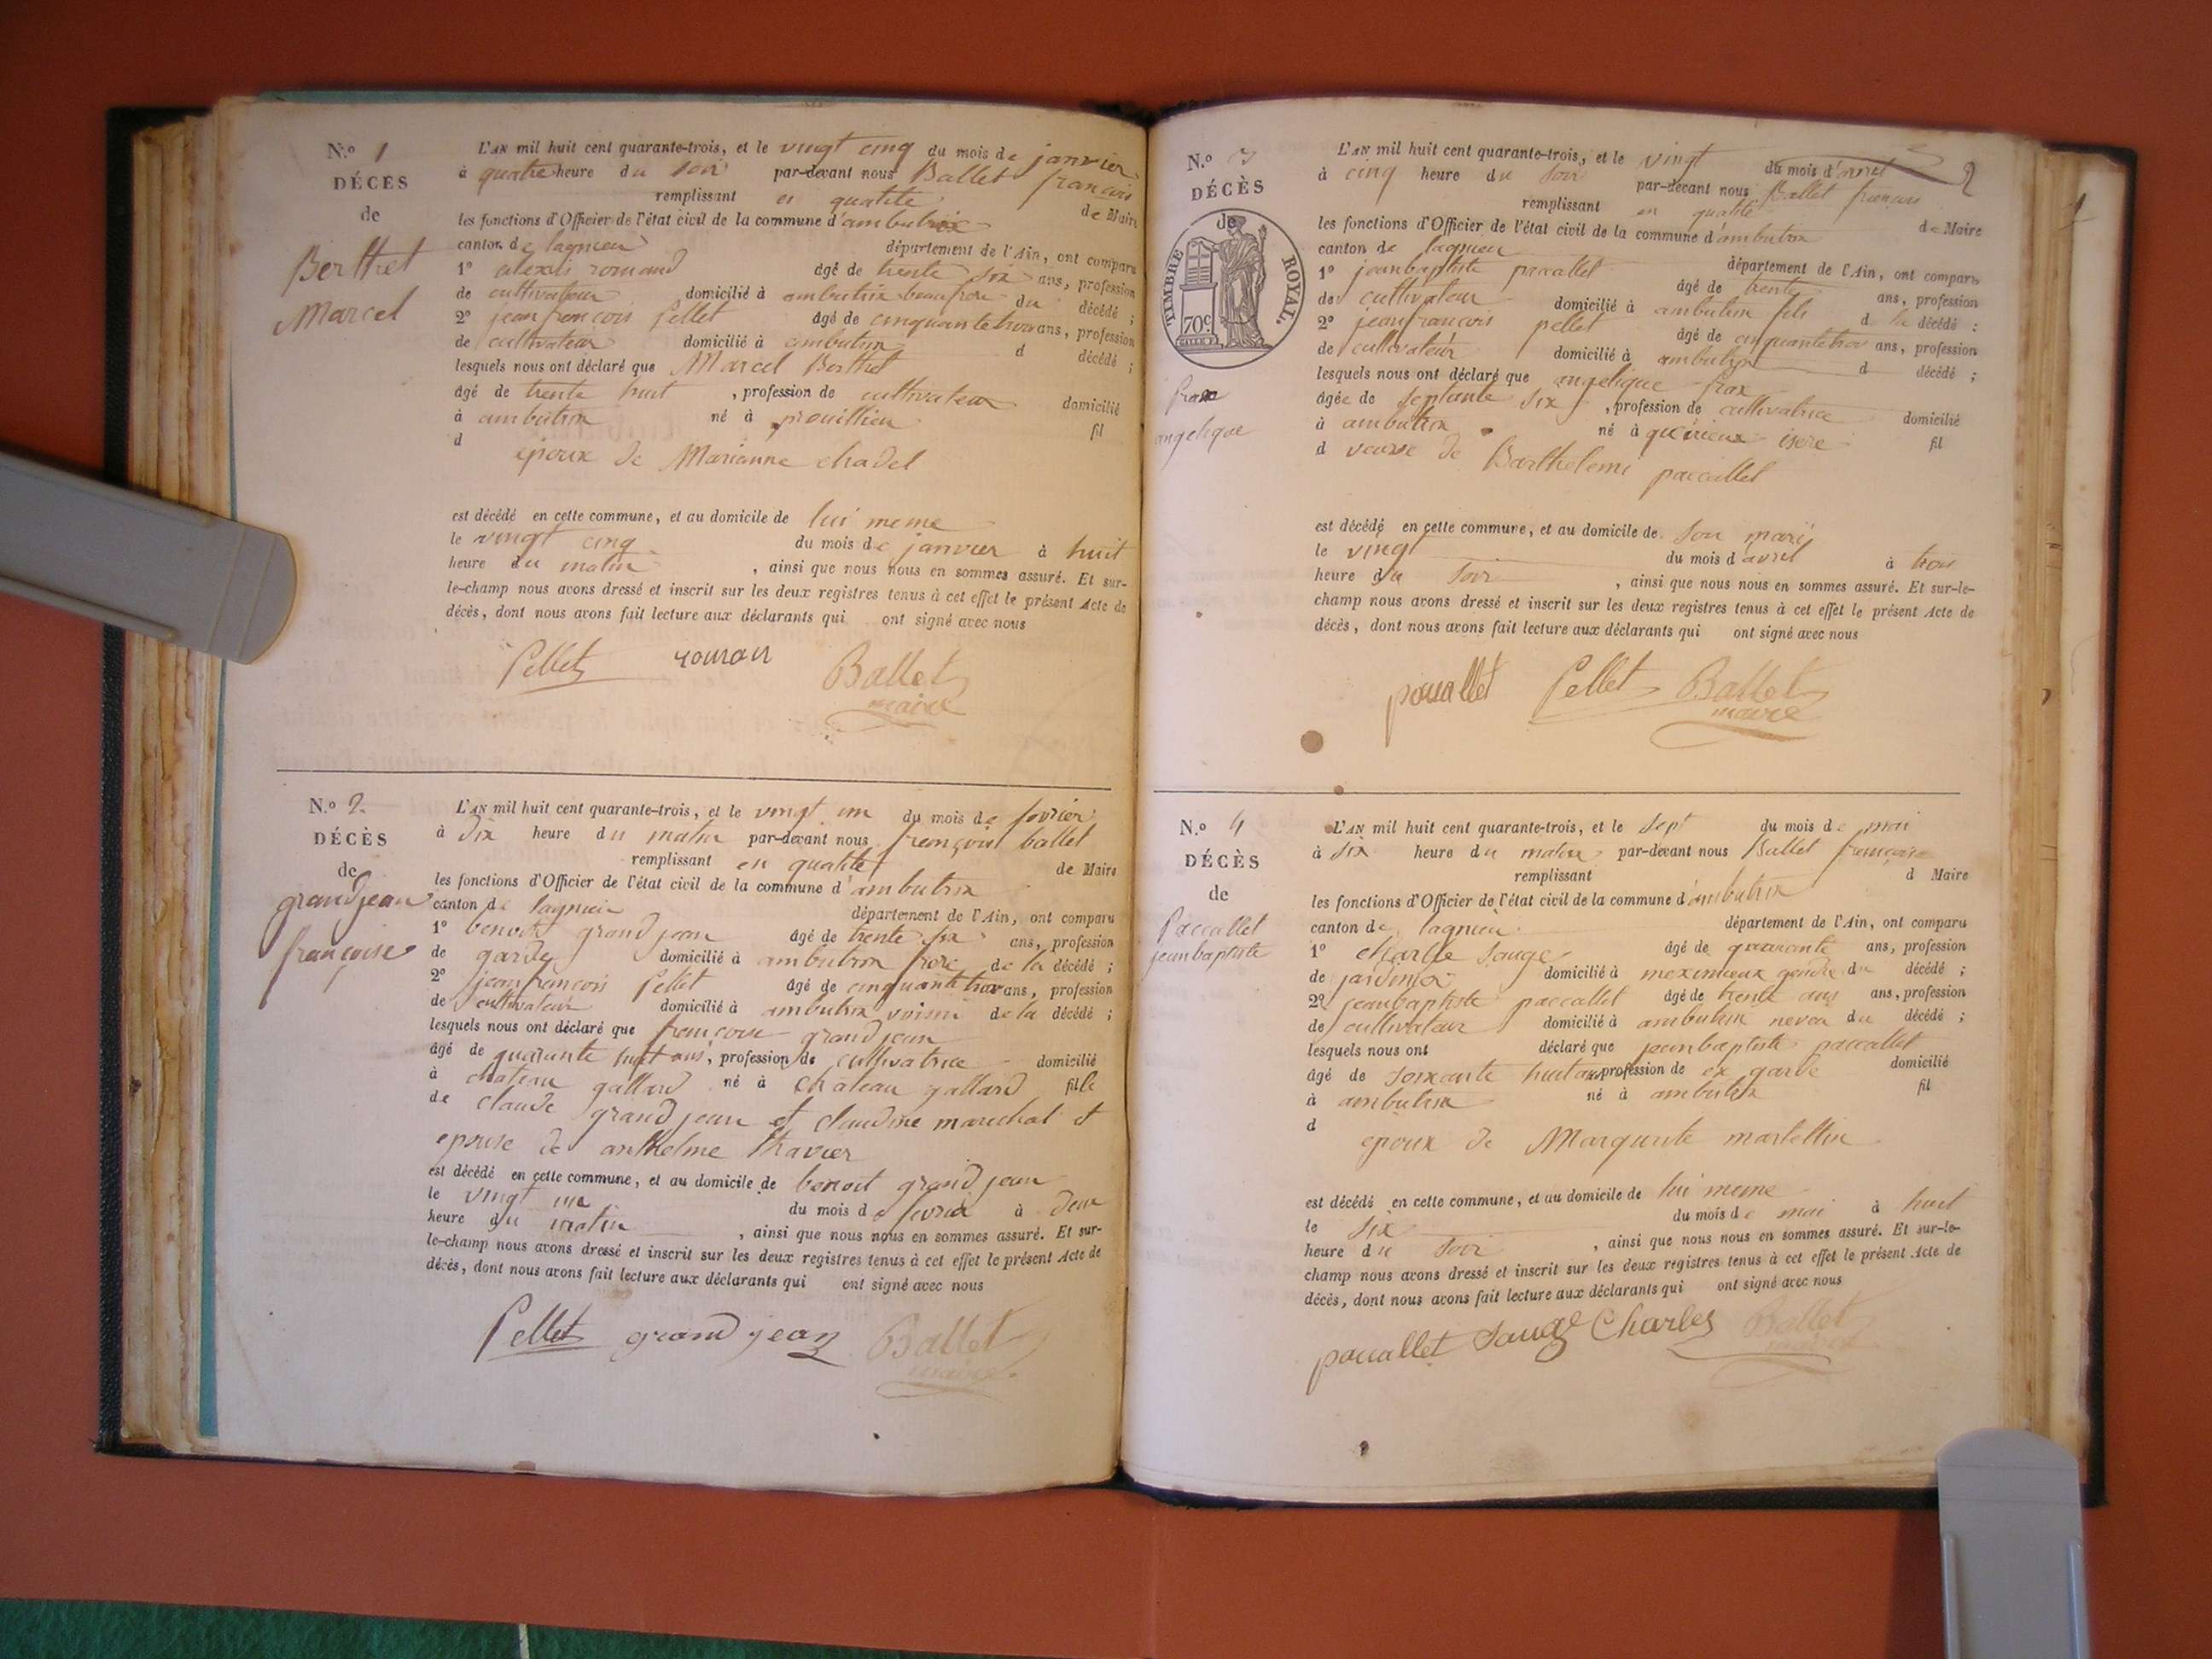 N.º 1
DÉCÈS
de
Berthet
Marcel
L'AN mil huit cent quarante-trois, et le vingt cinq du mois de janvier
à quatre heure du soir par-devant nous Ballet francois
remplissant en qualite de Maire
les fonctions d'Officier de l'état civil de la commune d'ambutrix
canton de lagnieu département de l'Ain, ont comparu
1º alexis romand âgé de trente six ans, profession
de cultivateur domicilié à ambutrix beaufrere du décédé ;
2º jean francois Pellet âgé de cinquante trois ans, profession
de cultivateur domicilié à ambutrix d décédé ;
lesquels nous ont déclaré que Marcel Berthet
âgé de trente huit , profession de cultivateur domicilié
à ambutrix né à prouillieu fil
d époux de Marianne chadel
est décédé en cette commune, et au domicile de lui meme
le vingt cinq du mois de janvier à huit
heure du matin , ainsi que nous nous en sommes assuré. Et sur-
le-champ nous avons dressé et inscrit sur les deux registres tenus à cet effet le présent Acte de
décès, dont nous avons fait lecture aux déclarants qui ont signé avec nous
Pellet roman Ballet
maire
N.º 2
DÉCÈS
de
grandjean
françoise
L'AN mil huit cent quarante-trois, et le vingt un du mois de fevrier
à dix heure du matin par-devant nous françois ballet
remplissant en qualité de Maire
les fonctions d'Officier de l'état civil de la commune d'ambutrix
canton de lagnieu département de l'Ain, ont comparu
1º benoit grand jean âgé de trente six ans, profession
de garde domicilié à ambutrix frere de la décédé ;
2º jean francois Pellet âgé de cinquante trois ans, profession
de cultivateur domicilié à ambutrix voisin de la décédé ;
lesquels nous ont déclaré que francoise grand jean
âgé de quarante huit ans, profession de cultivatrice domicilié
à chateau gallard né à chateau gallard fille
de claude grand jean et claudine marechal et
epouse de anthelme travier
est décédé en cette commune, et au domicile de benoit grand jean
le vingt un du mois de fevrier à deux
heure du matin , ainsi que nous nous en sommes assuré. Et sur-
le-champ nous avons dressé et inscrit sur les deux registres tenus à cet effet le présent Acte de
décès, dont nous avons fait lecture aux déclarants qui ont signé avec nous
Pellet grand jean Ballet
maire
2
N.º 3
DÉCÈS
de
TIMBRE ROYAL.
70c
frax
angelique
L'AN mil huit cent quarante-trois, et le vingt du mois d'avril
à cinq heure du soir par-devant nous Ballet françois
remplissant en qualité de Maire
les fonctions d'Officier de l'état civil de la commune d'ambutrix
canton de lagnieu département de l'Ain, ont comparu
1º jeanbaptiste paccallet âgé de trente ans, profession
de cultivateur domicilié à ambutrix fils d la décédé ;
2º jeanfrancois pellet âgé de cinquantetrois ans, profession
de cultivateur domicilié à ambutrix d décédé ;
lesquels nous ont déclaré que angelique frax
âgée de septante six , profession de cultivatrice domicilié
à ambutrix né à isere fil
d veuve de Barthelemi paccallet
est décédé en cette commune, et au domicile de son mari
le vingt du mois d avril à trois
heure du soir , ainsi que nous nous en sommes assuré. Et sur-le-
champ nous avons dressé et inscrit sur les deux registres tenus à cet effet le présent Acte de
décès, dont nous avons fait lecture aux déclarants qui ont signé avec nous
paccallet Pellet Ballet
maire
N.º 4
DÉCÈS
de
Paccallet
jeanbaptiste
L'AN mil huit cent quarante-trois, et le sept du mois de mai
à six heure du matin par-devant nous Ballet françois
remplissant d Maire
les fonctions d'Officier de l'état civil de la commune d'ambutrix
canton de lagnieu département de l'Ain, ont comparu
1º charle Sauge âgé de quarante ans, profession
de jardinier domicilié à meximieux gendre du décédé ;
2º jeanbaptiste paccallet âgé de trente ans ans, profession
de cultivateur domicilié à ambutrix neveu du décédé ;
lesquels nous ont déclaré que jeanbaptiste paccallet
âgé de soixante huit ans profession de ex garde domicilié
à ambutrix né à ambutrix fil
d époux de Margurite martellin
est décédé en cette commune, et au domicile de lui meme
le six du mois de mai à huit
heure du soir , ainsi que nous nous en sommes assuré. Et sur-le-
champ nous avons dressé et inscrit sur les deux registres tenus à cet effet le présent Acte de
décès, dont nous avons fait lecture aux déclarants qui ont signé avec nous
paccallet Sauge Charles Ballet
maire